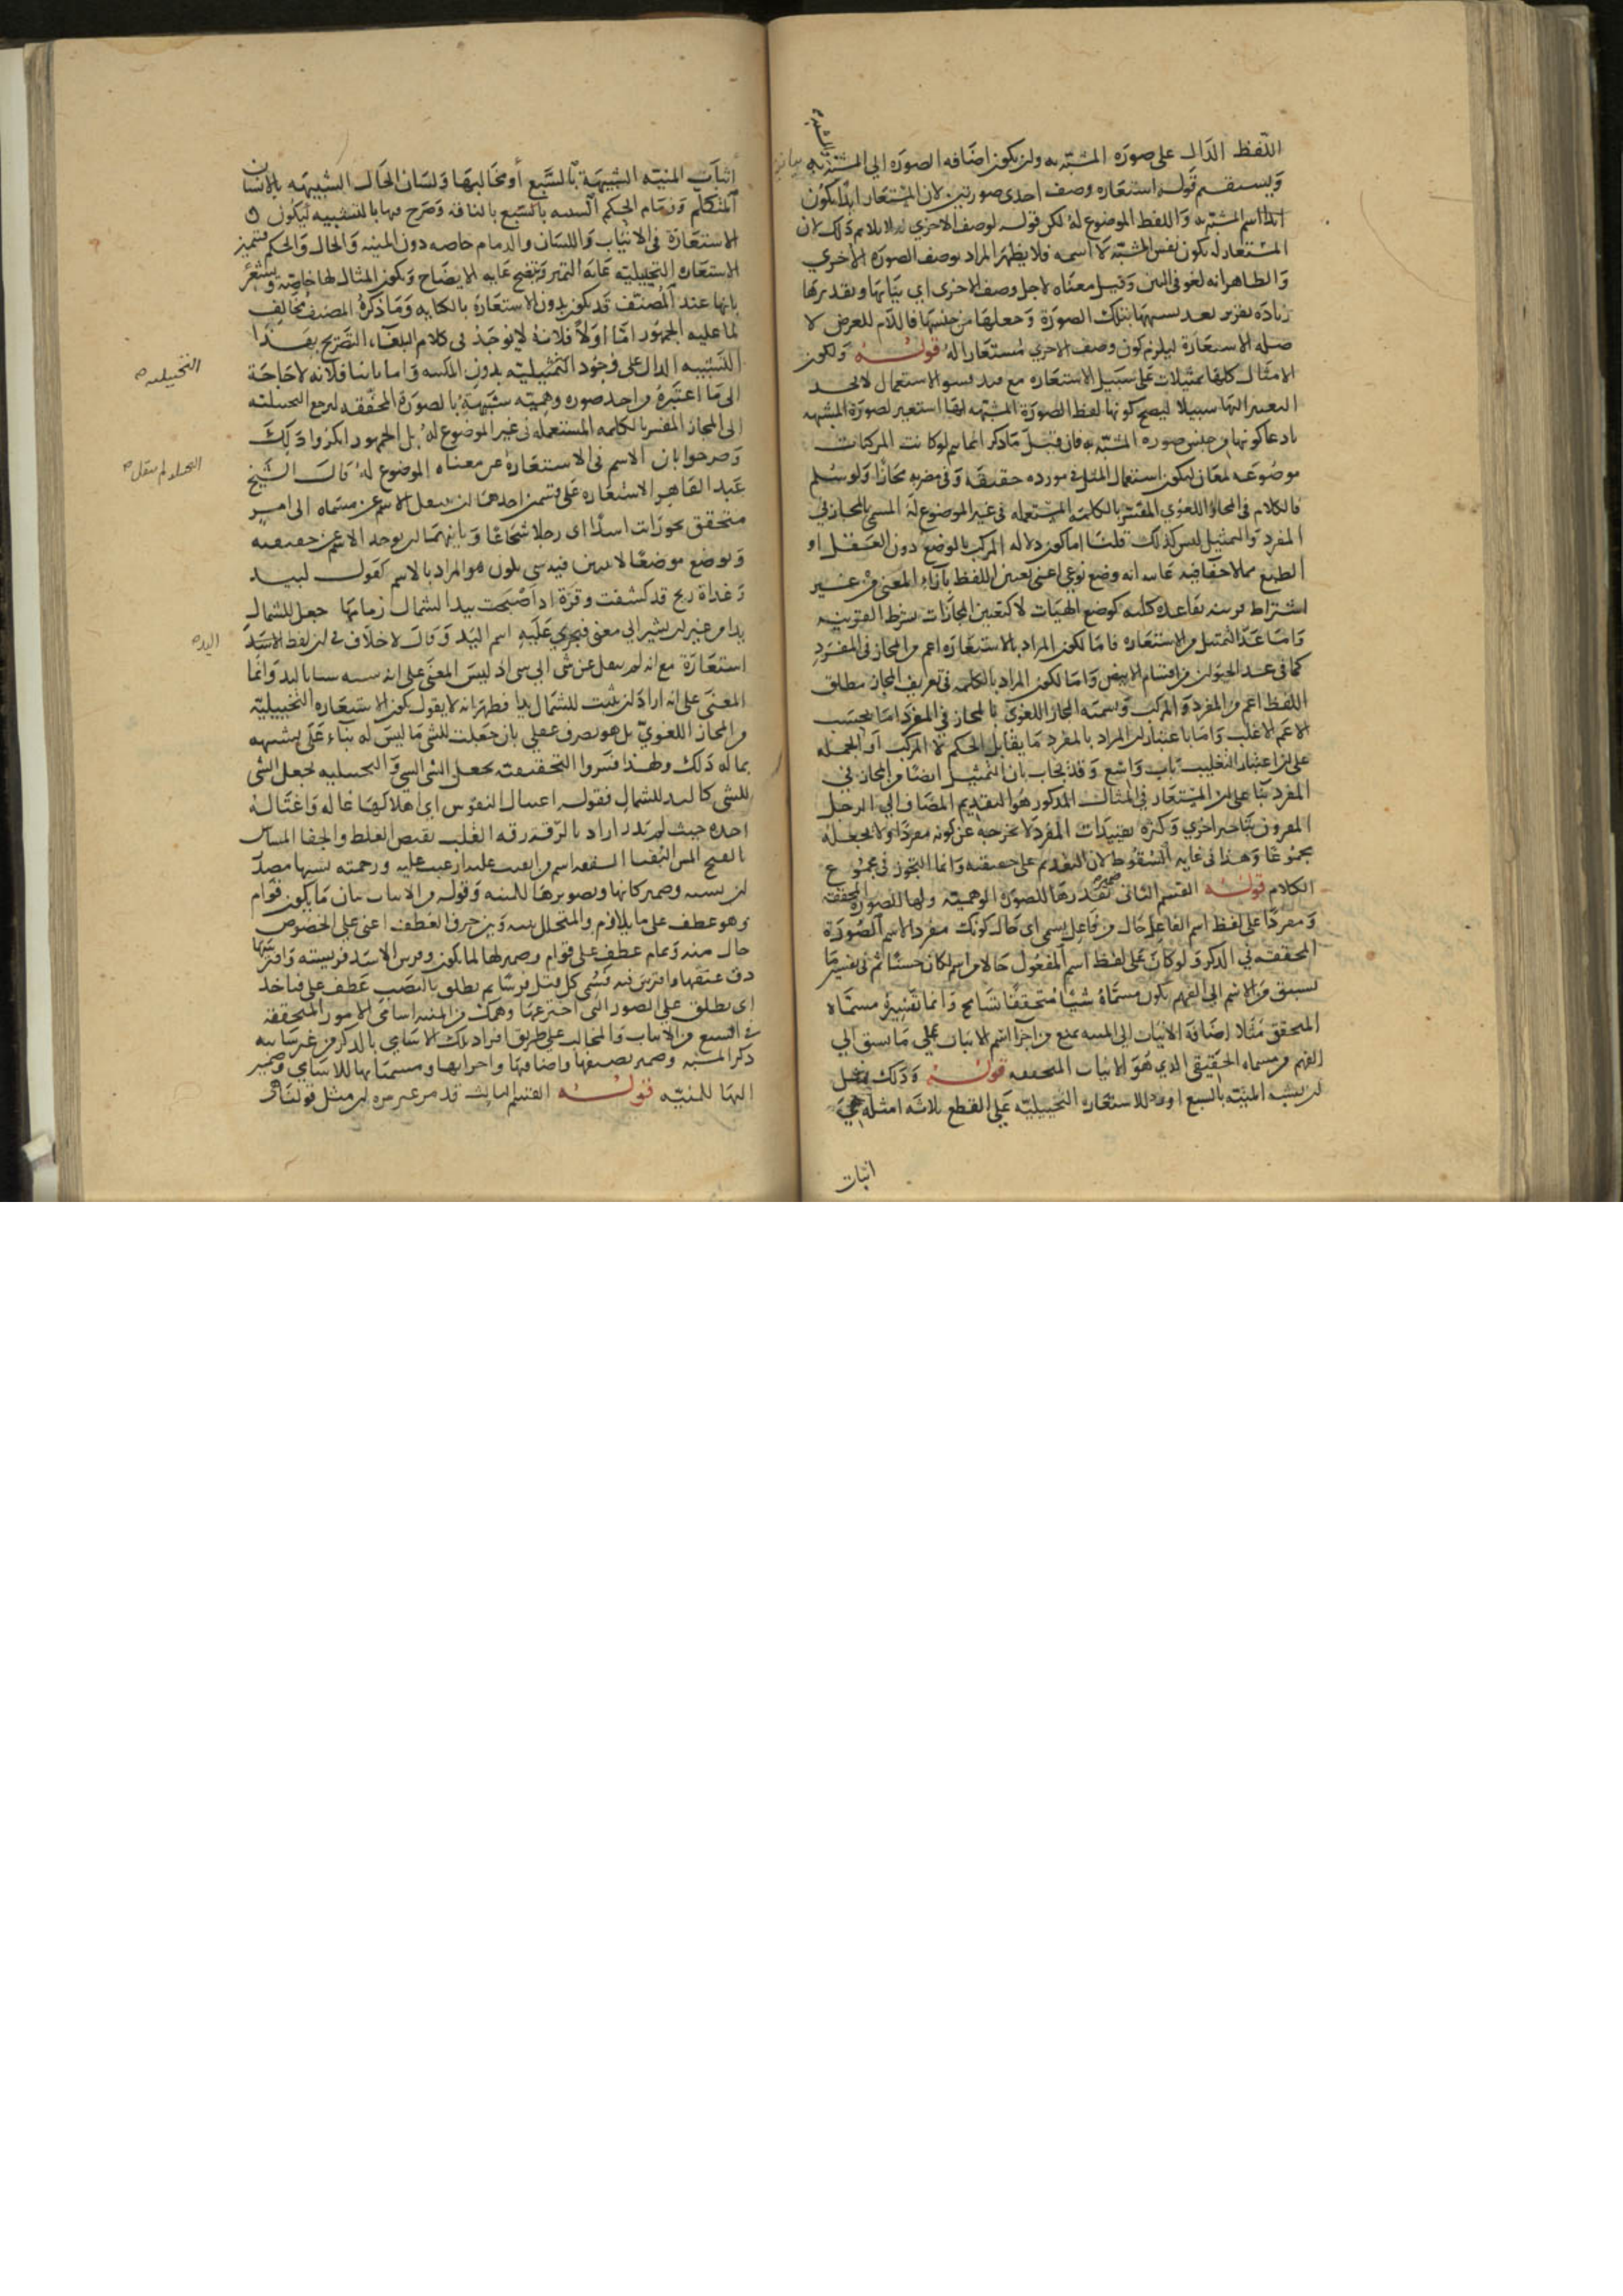 اللفظ الدال على صورة المشبه به ولن يكون اضافه الصورة الي المشبه به
ويستقيم قوله استعاره وصف احدى صورتين لان المستعار ابدا يكون
ابدا اسم المشبه به واللفظ الموضوع له لكن قوله لوصف الاخري لا يلايم ذلك لان
المستعار له يكون نفس المشبه لا اسمه فلا يظهر المراد بوصف الصورة الاخري
والظاهر انه لغو في البين وقيل معناه لاجل وصف الاخرى اي بيانها وتقديرها
زيادة تقرير بعد تشبيهها بتلك الصورة وجعلها من جنسها فاللام للغرض لا
صله الاستعارة ليلزم كون وصف الاخري مستعارا له قوله ولكون
الامثال كلها تمثيلات على سبيل الاستعاره مع الاستعمال لا يجد
التغيير اليها سبيلا ليصح كونها لفظ الصورة المشبه بها استعير لصورة المشبه
بادعا كونها من جنس صوره المشبه به فان قيل ما ذكر انما يتم لو كانت المركبات
موضوعه لمعان ليكون استعمال المثل في مورده حقيقة وفي مضربه مجازا ولو سلم
فالكلام في المجاز اللغوي المفسر بالكلمة المستعمله في غير الموضوع له المسمى بالمجاز في
المفرد والتمثيل ليس كذلك قلنا اما كون دلاله المركب بالوضع دون العقل او
الطبع مما لا خفا فيه غايته انه وضع نوعي اعني تعيين اللفظ بازاء المعنى من غير
اشتراط قرينه بقاعده كليه كوضع الهيات لا كتعيين المجازات بشرط القرينه
واما عد التمثيل من الاستعاره فاما لكون المراد بالاستعاره اعم من المجاز في المفرد
كما في عد الحيوان من اقسام الابيض واما لكون المراد بالكلمه في تعريف المجاز مطلق
اللفظ اعم من المفرد والمركب وتسميه المجاز اللغوي بالمجاز في المفرد اما بحسب
الاعم الاغلب واما باعتبار ان المراد بالمفرد ما يقابل الحكم لا المركب او الجمله
على ان اعتبار التغليب باب واسع وقد يجاب بان التمثيل ايضا من المجاز في
المفرد بنا على ان المستعار في المثال المذكور هو التقديم المضاف الي الرجل
المقرون بتاخير اخري وكثره تقييدات المفرد لا تخرجه عن كونه مفردا ولا تجعله
مجموعا وهذا في غايه السقوط لان التقديم على حقيقته وانما التجوز في مجموع
الكلام قوله القسم الثاني ضمير تقدرها للصورة الوهمية ولها للصورة المحققة
ومفردا على لفظ اسم الفاعل حال من فاعل يسمى اي حال كونك مفردا لاسم الصورة
المحققه في الذكر ولو كان على لفظ اسم المفعول حالا من اسم لكان حسنا ثم في تفسير ما
يسبق من الاسم الي الفهم بكون مسماه شيا متحققا تسامح وانما تفسيره مسماه
المتحقق مثلا اضافة الانياب الى المنيه يمنع من اجرا اسم الانياب على ما يسبق الي
الفهم من مسماه الحقيقي الذي هو الانياب المتحققه قوله وذلك مثل
ان يشبه المنية بالسبع اورد للاستعارة التخييليه على القطع ثلاثه امثله هي
اثبات
اثبات المنيه الشبيهة بالسبع أو مخالبها ولسان الحال الشبيهه بالانسان
المتكلم وزمام الحكم بالناقه وصرح بالتشبيه ليكون
الاستعارة في الانياب واللسان والزمام خاصه دون المنيه والحال والحكم فتميز
الاستعاره التخييلية غاية التميز وتتضح غايه الايضاح ويكون المثال لها خاصه ويشعر
بانها عند المصنف قد تكون بدون الاستعارة بالكنايه وما ذكره المصنف مخالف
لما عليه الجمهور اما اولا فلانه لا يوجد في كلام البلغاء التصريح بهذا
التشبيه الدال على وجود التخييليه بدون المكنيه واما ثانيا فلانه لا حاجة
الى ما اعتبره واحد صوره وهمية شبيهة بالصورة المحققه ليرجع التخييليه
التخييليه
الى المجاز المفسر بالكلمه المستعمله في غير الموضوع له بل الجمهور انكروا ذلك
وصرحوا بان الاسم في الاستعارة عن معناه الموضوع له قال الشيخ
عبد القاهر الاستعاره على قسمين احدهما ان ينقل الاسم عن مسماه الى امر
متحقق نحو رايت اسدا اى رجلا شجاعا وثانيهما ان يوخذ الاسم عن حقيقته
ويوضع موضعا لا يتبين فيه شي يكون هو المراد بالاسم كقول لبيد
وغداة ريح قد كشفت وقرة اذ اصبحت بيد الشمال زمامها جعل للشمال
يدا من غير ان يشير الي معنى فيجري عليه اسم اليد وقال لا خلاف في ان لفظ الاسد
اليد
استعارة مع انه لم ينقل عن شي الي شي اذ ليس المعنى على انه شبه شيا باليد وانما
المعنى على انه اراد ان يثبت للشمال يدا فظهر انه لا يقول بكون الاستعاره التخييلية
من المجاز اللغوي بل هو تصرف عقلي بان جعلت للشي ما ليس له بناء على تشبيهه
بما له ذلك ولهذا فسروا التحقيقيه بجعل الشي الشي والتخييليه بجعل الشي
للشي كاليد للشمال فقوله اغتيال النفوس اي اهلاكها غاله واغتاله
اخذه حيث لم يدر اراد بالرقة رقه القلب نقيض الغلظ والجفا
وهو عطف على ما يلازم والمتخلل بينه وبين حرف العطف اعني على الخصوص
حال منه وتمام عطف على قوام وضمير لها لما يكون وفرس الاسد فريسته وافترسها
دق عنقها وافترس فيه فسمى كل قتل فرسا ثم يطلق بالنصب عطف على فتاخذ
اى يطلق على الصور التي اخترعها وهمك من المنيه اسامي الامور المتحققه
في السبع من الانياب والمخالب على طريق افراد تلك الاسامي بالذكر من غير
ذكر المشبه وضمير تضيفها واضافتها واجرايها ومسمياتها للاسامي وضمير
اليها للمنيه قوله القسم الثالث قد مر غير مره ان مثل قولنا